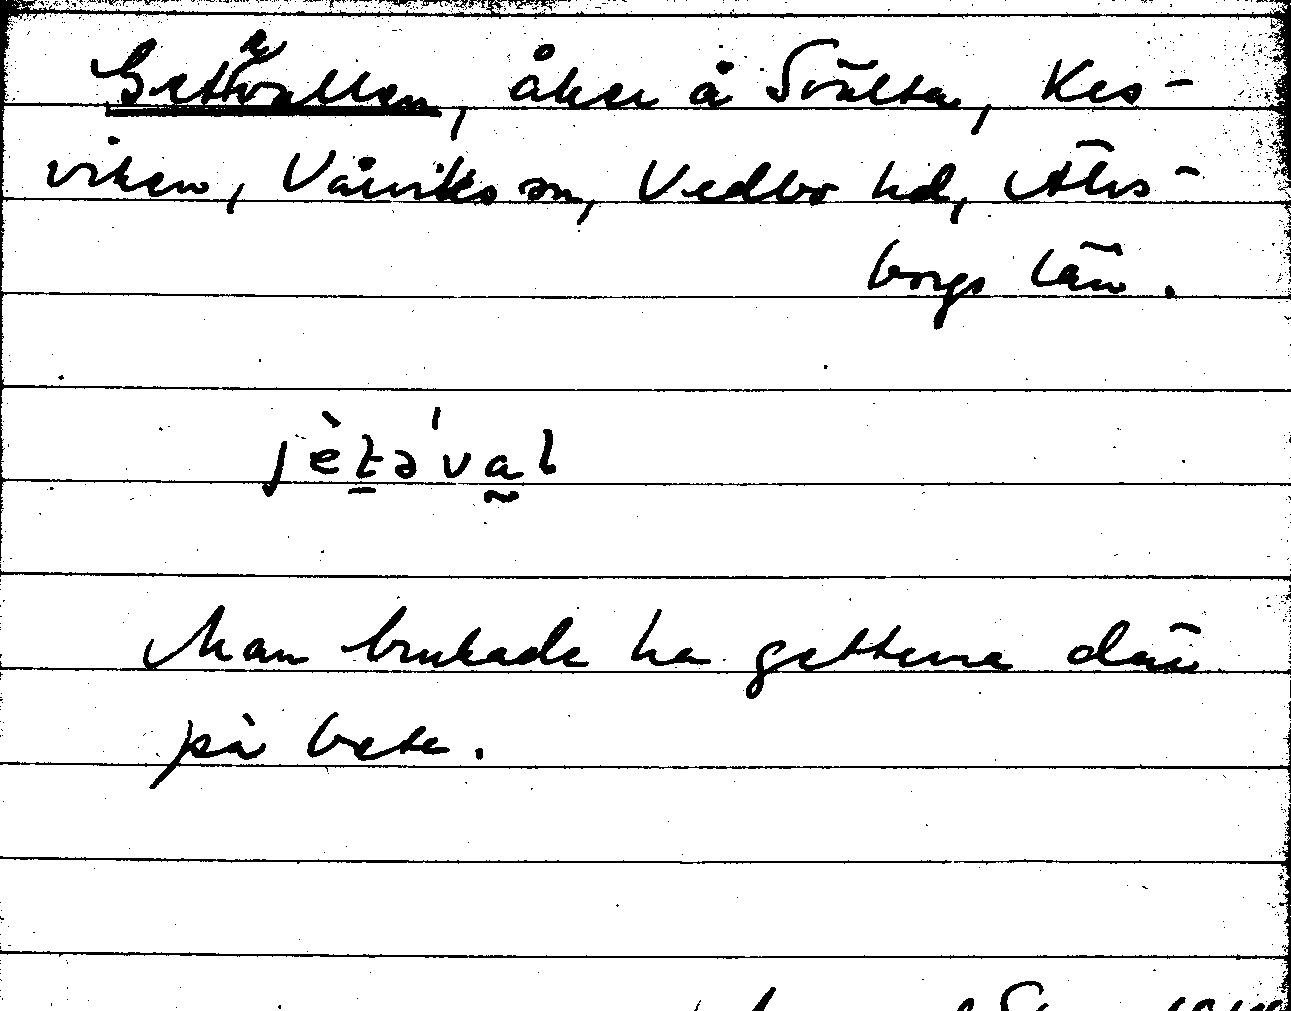 Gettavallen, åker å Svälta, Kes-
viken, Vårviks sn, Vedbo hd, Älvs-
borgs län.
jètə'val
Man brukade ha getterna där
på bete.